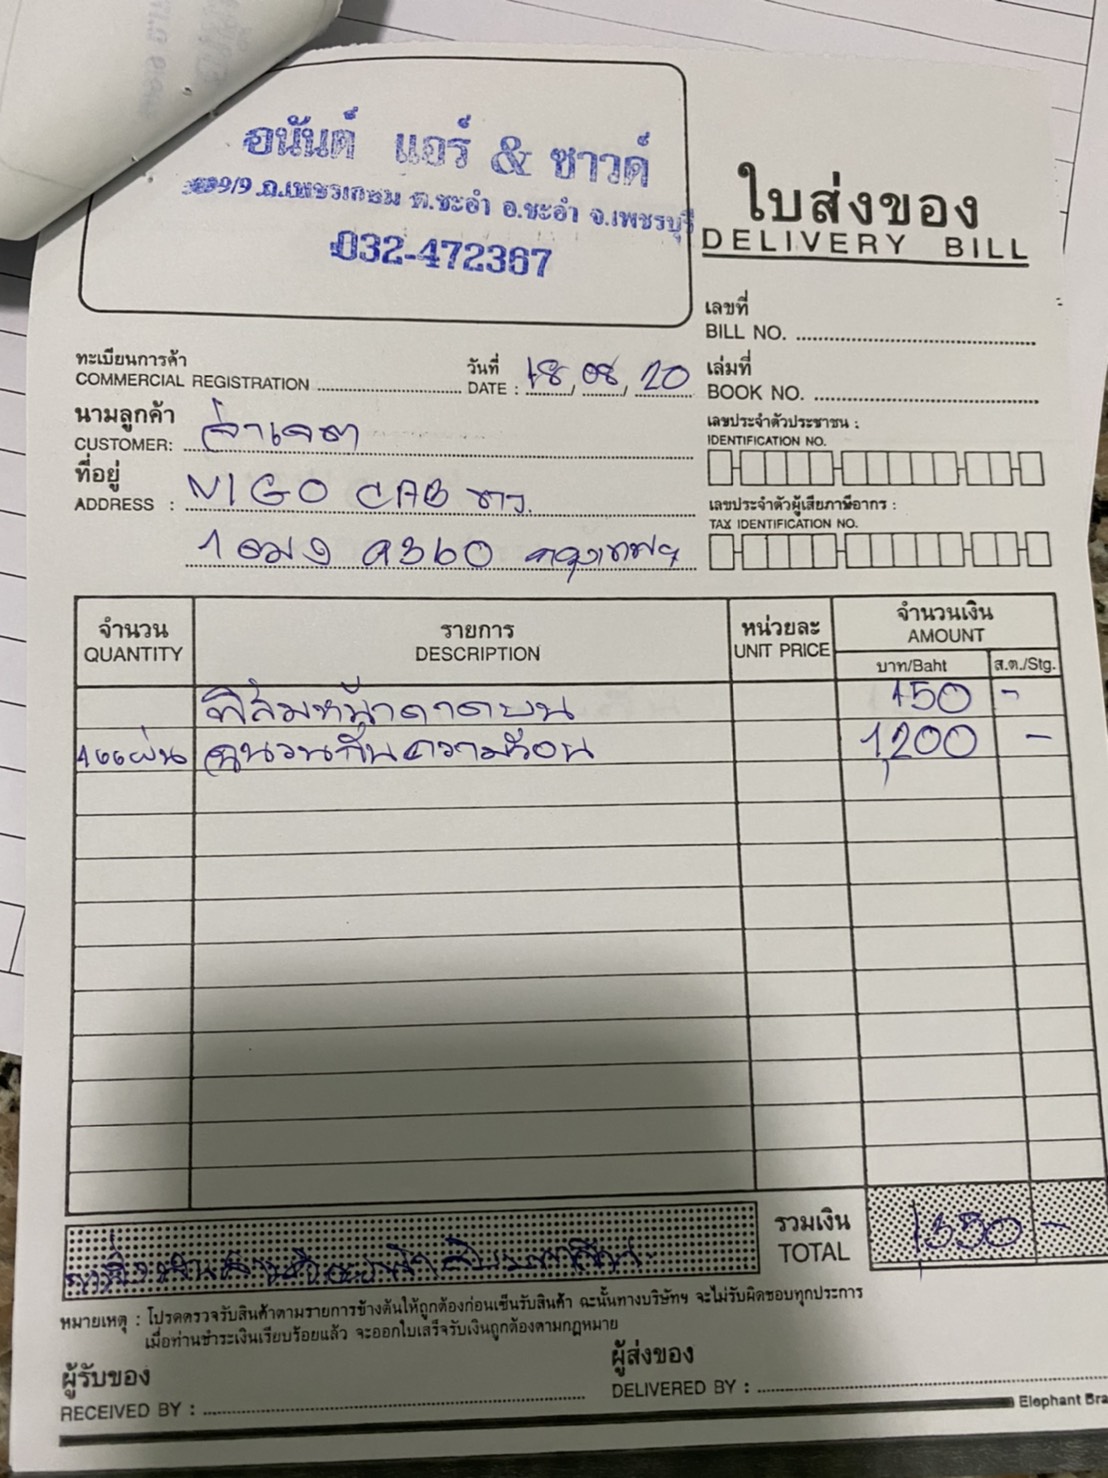 อนันต์ แอร์ & ซาวด์
899/9 ถ.เพชรเกษม ต.ชะอำ อ.ชะอำ จ.เพชรบุรี
032-472367
ใบส่งของ
DELIVERY BILL
เลขที่
BILL NO.
ทะเบียนการค้า
COMMERCIAL REGISTRATION
วันที่
DATE : 18, 08, 20
เล่มที่
BOOK NO.
นามลูกค้า
CUSTOMER:
เลขประจำตัวประชาชน :
IDENTIFICATION NO.
ที่อยู่
ADDRESS : VIGO CAB
เลขประจำตัวผู้เสียภาษีอากร :
TAX IDENTIFICATION NO.
1 ฒง 9360 กรุงเทพฯ
จำนวน QUANTITY
รายการ DESCRIPTION
หน่วยละ UNIT PRICE
จำนวนเงิน AMOUNT
บาท/Baht ส.ต./Stg.
ฟิล์มหน้าคาดบน 150 -
1 แผ่น ฉนวนกันความร้อน 1,200 -
รวมเงิน
TOTAL 1,350 -
หมายเหตุ : โปรดตรวจรับสินค้าตามรายการข้างต้นให้ถูกต้องก่อนเซ็นรับสินค้า ฉะนั้นทางบริษัทฯ จะไม่รับผิดชอบทุกประการ
เมื่อท่านชำระเงินเรียบร้อยแล้ว จะออกใบเสร็จรับเงินถูกต้องตามกฎหมาย
ผู้รับของ
RECEIVED BY :
ผู้ส่งของ
DELIVERED BY :
Elephant Bra